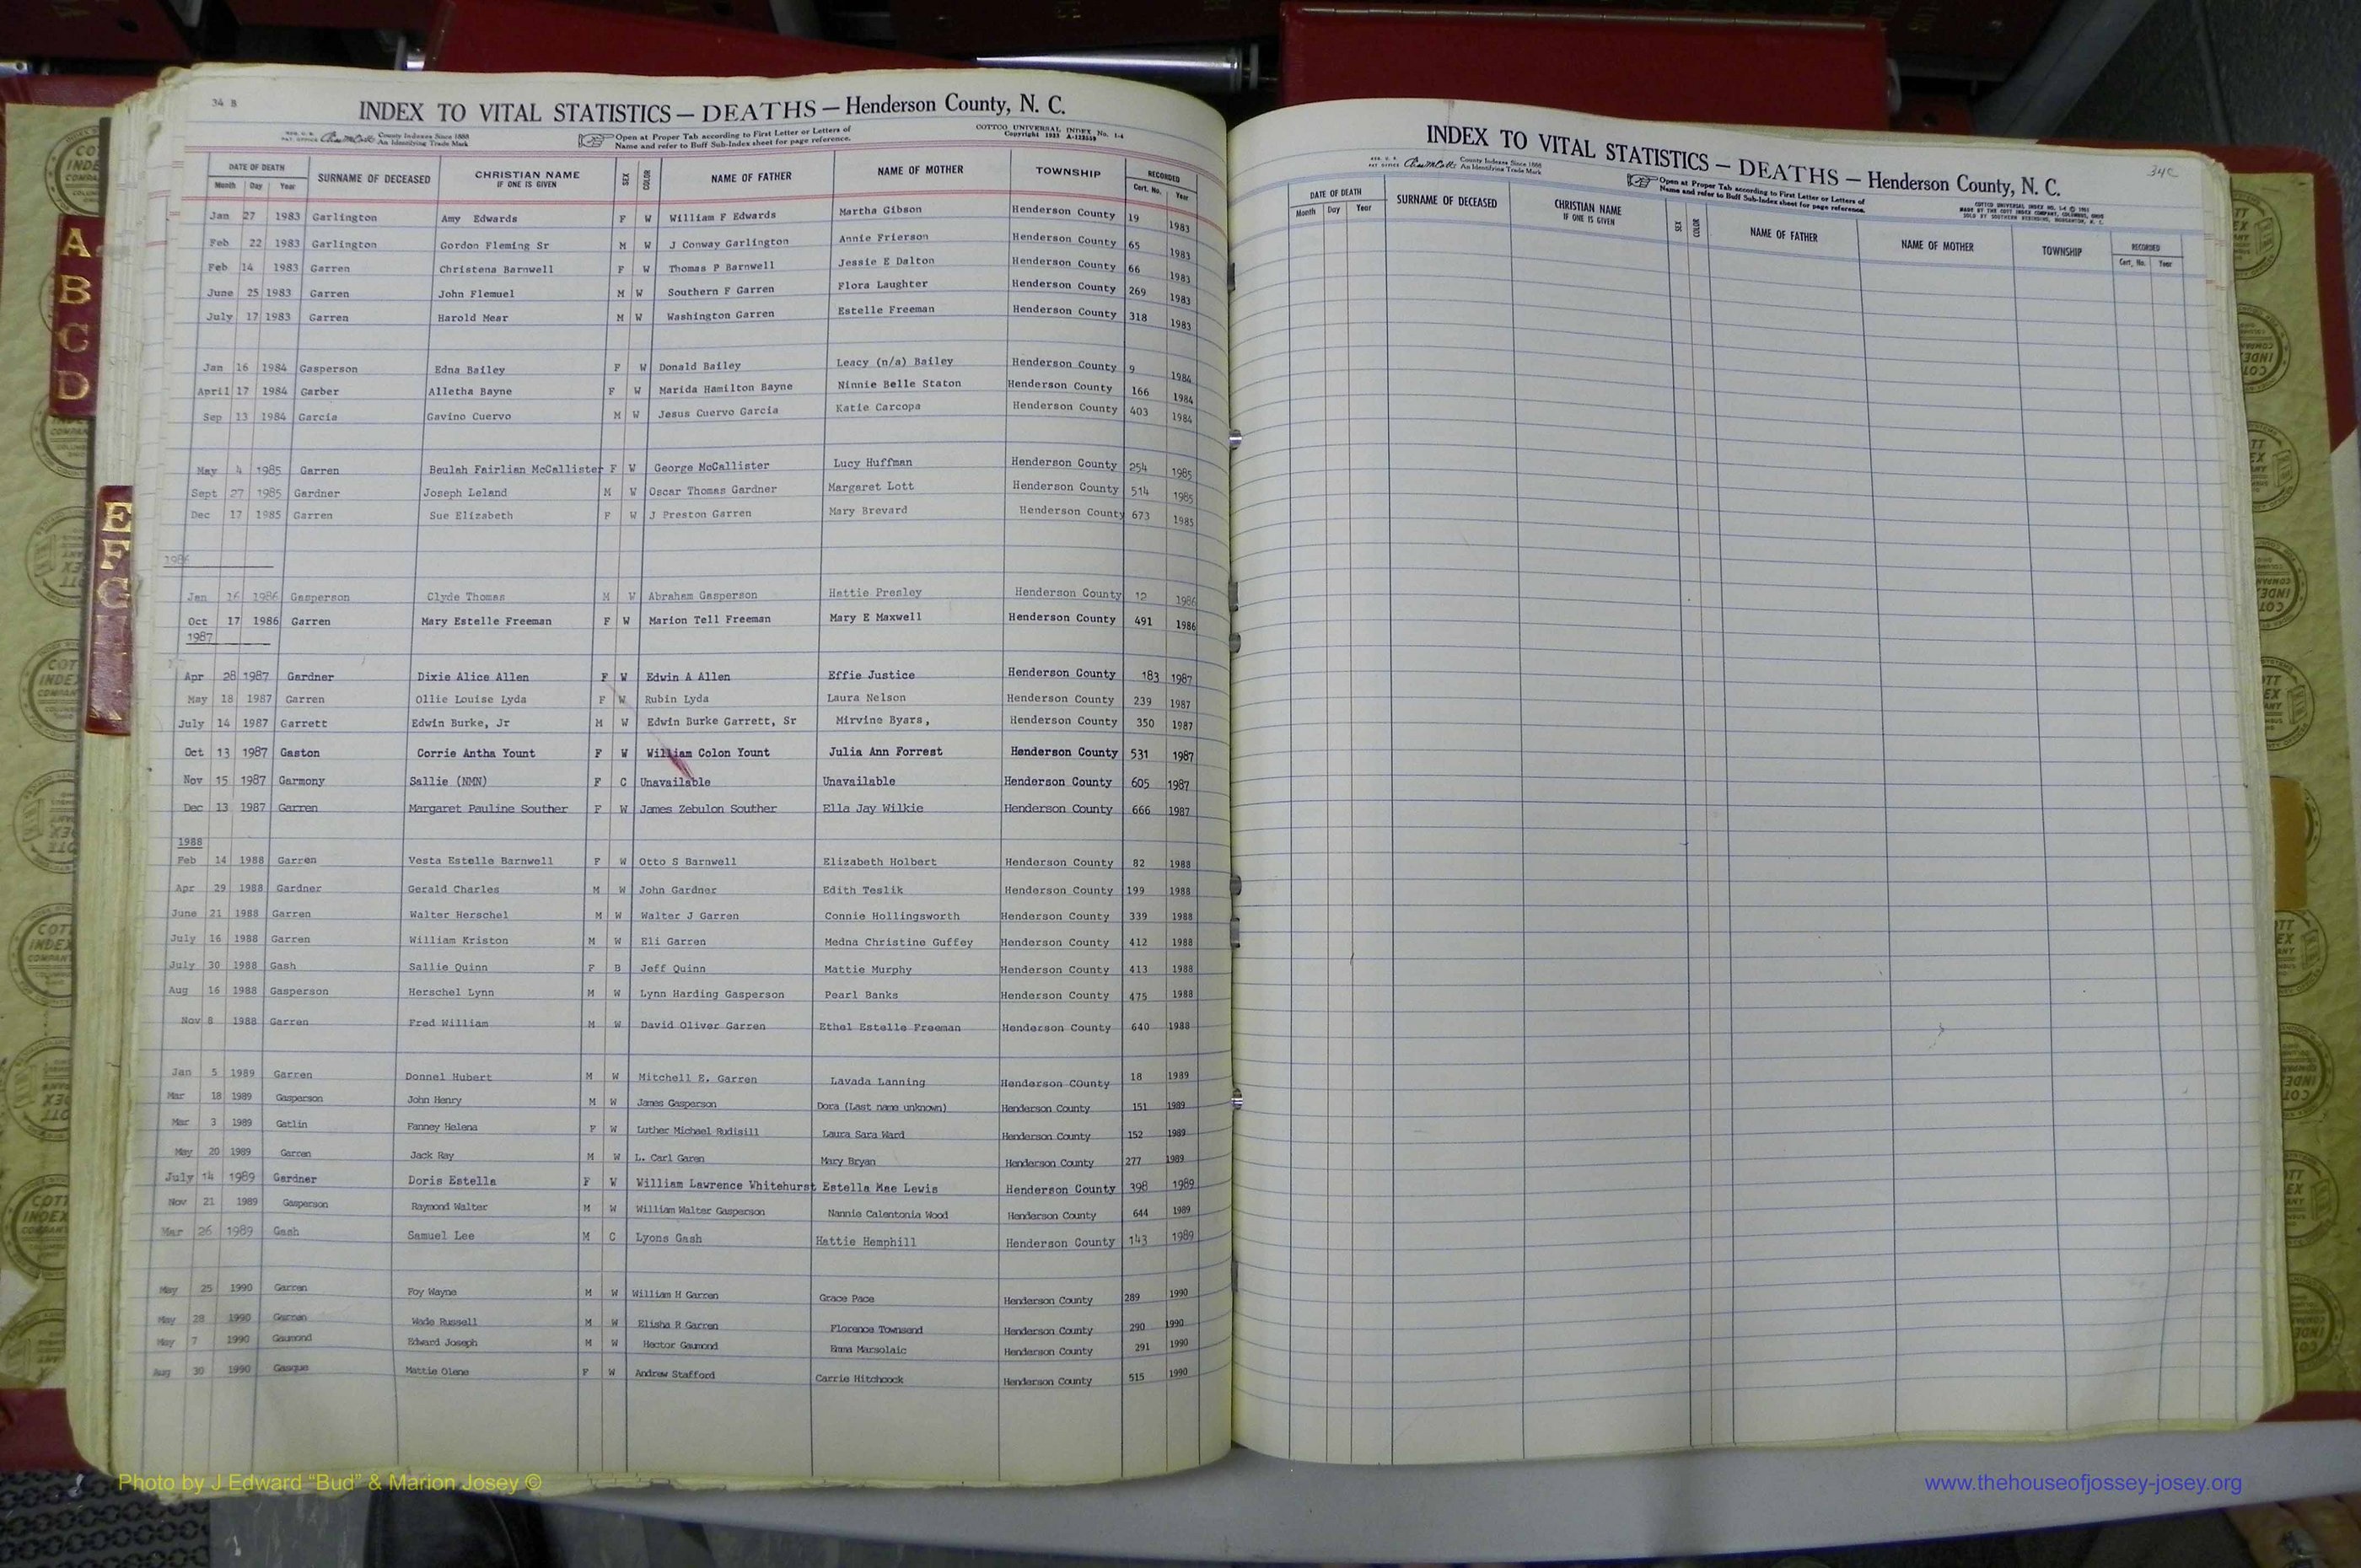 34 B
INDEX TO VITAL STATISTICS — DEATHS — Henderson County, N. C.
REG. U. S. PAT. OFFICE County Indexes Since 1888 An Identifying Trade Mark
Open at Proper Tab according to First Letter or Letters of Name and refer to Buff Sub-Index sheet for page reference.
COTTCO UNIVERSAL INDEX No. 1-4 Copyright 1933
DATE OF DEATH SURNAME OF DECEASED CHRISTIAN NAME IF ONE IS GIVEN SEX COLOR NAME OF FATHER NAME OF MOTHER TOWNSHIP RECORDED
Month Day Year Cert. No. Year
Jan 27 1983 Garlington Amy Edwards F W William F Edwards Martha Gibson Henderson County 19 1983
Feb 22 1983 Garlington Gordon Fleming Sr M W J Conway Garlington Annie Frierson Henderson County 65 1983
Feb 14 1983 Garren Christena Barnwell F W Thomas P Barnwell Jessie E Dalton Henderson County 66 1983
June 25 1983 Garren John Flemuel M W Southern F Garren Flora Laughter Henderson County 269 1983
July 17 1983 Garren Harold Mear M W Washington Garren Estelle Freeman Henderson County 318 1983
Jan 16 1984 Gasperson Edna Bailey F W Donald Bailey Leacy (n/a) Bailey Henderson County 9 1984
April 17 1984 Garber Alletha Bayne F W Marida Hamilton Bayne Ninnie Belle Staton Henderson County 166 1984
Sep 13 1984 Garcia Gavino Cuervo M W Jesus Cuervo Garcia Katie Carcopa Henderson County 403 1984
May 4 1985 Garren Beulah Fairlian McCallister F W George McCallister Lucy Huffman Henderson County 254 1985
Sept 27 1985 Gardner Joseph Leland M W Oscar Thomas Gardner Margaret Lott Henderson County 514 1985
Dec 17 1985 Garren Sue Elizabeth F W J Preston Garren Mary Brevard Henderson County 673 1985
1986
Jan 16 1986 Gasperson Clyde Thomas M W Abraham Gasperson Hattie Presley Henderson County 12 1986
Oct 17 1986 Garren Mary Estelle Freeman F W Marion Tell Freeman Mary E Maxwell Henderson County 491 1986
1987
Apr 28 1987 Gardner Dixie Alice Allen F W Edwin A Allen Effie Justice Henderson County 183 1987
May 18 1987 Garren Ollie Louise Lyda F W Rubin Lyda Laura Nelson Henderson County 239 1987
July 14 1987 Garrett Edwin Burke, Jr M W Edwin Burke Garrett, Sr Mirvine Byars, Henderson County 350 1987
Oct 13 1987 Gaston Corrie Antha Yount F W William Colon Yount Julia Ann Forrest Henderson County 531 1987
Nov 15 1987 Garmony Sallie (NMN) F C Unavailable Unavailable Henderson County 605 1987
Dec 13 1987 Garren Margaret Pauline Souther F W James Zebulon Souther Ella Jay Wilkie Henderson County 666 1987
1988
Feb 14 1988 Garren Vesta Estelle Barnwell F W Otto S Barnwell Elizabeth Holbert Henderson County 82 1988
Apr 29 1988 Gardner Gerald Charles M W John Gardner Edith Teslik Henderson County 199 1988
June 21 1988 Garren Walter Herschel M W Walter J Garren Connie Hollingsworth Henderson County 339 1988
July 16 1988 Garren William Kriston M W Eli Garren Medna Christine Guffey Henderson County 412 1988
July 30 1988 Gash Sallie Quinn F B Jeff Quinn Mattie Murphy Henderson County 413 1988
Aug 16 1988 Gasperson Herschel Lynn M W Lynn Harding Gasperson Pearl Banks Henderson County 475 1988
Nov 8 1988 Garren Fred William M W David Oliver Garren Ethel Estelle Freeman Henderson County 640 1988
Jan 5 1989 Garren Donnel Hubert M W Mitchell E. Garren Lavada Lanning Henderson COunty 18 1989
Mar 18 1989 Gasperson John Henry M W James Gasperson Dora (Last name unknown) Henderson County 151 1989
Mar 3 1989 Gatlin Fanney Helena F W Luther Michael Rudisill Laura Sara Ward Henderson County 152 1989
May 20 1989 Garren Jack Ray M W L. Carl Garen Mary Bryan Henderson County 277 1989
July 14 1989 Gardner Doris Estella F W William Lawrence Whitehurst Estella Mae Lewis Henderson County 398 1989
Nov 21 1989 Gasperson Raymond Walter M W William Walter Gasperson Nannie Calentonia Wood Henderson County 644 1989
Mar 26 1989 Gash Samuel Lee M C Lyons Gash Hattie Hemphill Henderson County 143 1989
May 25 1990 Garren Foy Wayne M W William H Garren Grace Pace Henderson County 289 1990
May 28 1990 Garren Wade Russell M W Elisha R Garren Florence Townsend Henderson County 290 1990
May 7 1990 Gaumond Edward Joseph M W Hector Gaumond Emma Marsolaic Henderson County 291 1990
Aug 30 1990 Gasque Mattie Olene F W Andrew Stafford Carrie Hitchcock Henderson County 515 1990
34C
INDEX TO VITAL STATISTICS — DEATHS — Henderson County, N. C.
REG. U. S. PAT. OFFICE County Indexes Since 1888 An Identifying Trade Mark
Open at Proper Tab according to First Letter or Letters of Name and refer to Buff Sub-Index sheet for page reference.
DATE OF DEATH SURNAME OF DECEASED CHRISTIAN NAME IF ONE IS GIVEN SEX COLOR NAME OF FATHER NAME OF MOTHER TOWNSHIP RECORDED
Month Day Year Cert. No. Year
A
B
C
D
E
F
G
Photo by J Edward “Bud” & Marion Josey ©
www.thehouseofjossey-josey.org